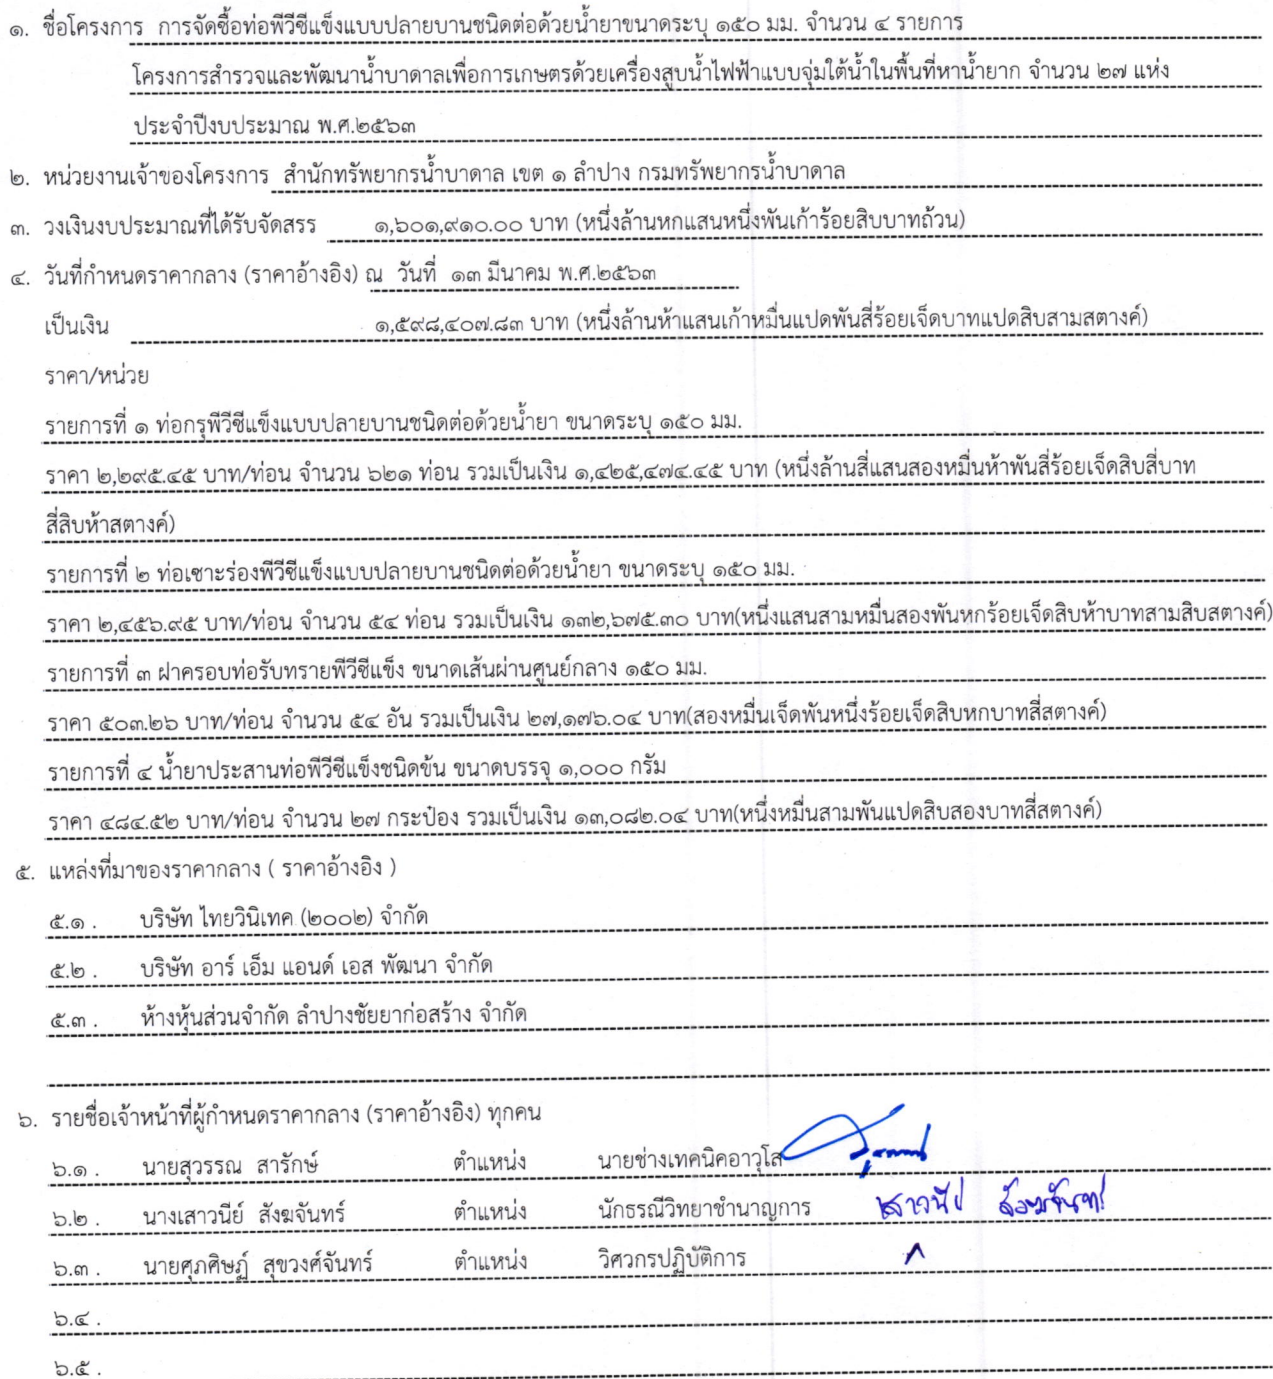 ๑. ชื่อโครงการ การจัดซื้อท่อพีวีซีแข็งแบบปลายบานชนิดต่อด้วยน้ำยาขนาดระบุ ๑๕๐ มม. จำนวน ๔ รายการ
โครงการสำรวจและพัฒนาน้ำบาดาลเพื่อการเกษตรด้วยเครื่องสูบน้ำไฟฟ้าแบบจุ่มใต้น้ำในพื้นที่หาน้ำยาก จำนวน ๒๗ แห่ง
ประจำปีงบประมาณ พ.ศ.๒๕๖๓
๒. หน่วยงานเจ้าของโครงการ สำนักทรัพยากรน้ำบาดาล เขต ๑ ลำปาง กรมทรัพยากรน้ำบาดาล
๓. วงเงินงบประมาณที่ได้รับจัดสรร ๑,๖๐๑,๙๑๐.๐๐ บาท (หนึ่งล้านหกแสนหนึ่งพันเก้าร้อยสิบบาทถ้วน)
๔. วันที่กำหนดราคากลาง (ราคาอ้างอิง) ณ วันที่ ๑๓ มีนาคม พ.ศ.๒๕๖๓
เป็นเงิน ๑,๕๙๘,๔๐๗.๘๓ บาท (หนึ่งล้านห้าแสนเก้าหมื่นแปดพันสี่ร้อยเจ็ดบาทแปดสิบสามสตางค์)
ราคา/หน่วย
รายการที่ ๑ ท่อกรุพีวีซีแข็งแบบปลายบานชนิดต่อด้วยน้ำยา ขนาดระบุ ๑๕๐ มม.
ราคา ๒,๒๙๕.๔๕ บาท/ท่อน จำนวน ๖๒๑ ท่อน รวมเป็นเงิน ๑,๔๒๕,๔๗๔.๔๕ บาท (หนึ่งล้านสี่แสนสองหมื่นห้าพันสี่ร้อยเจ็ดสิบสี่บาท
สี่สิบห้าสตางค์)
รายการที่ ๒ ท่อเซาะร่องพีวีซีแข็งแบบปลายบานชนิดต่อด้วยน้ำยา ขนาดระบุ ๑๕๐ มม.
ราคา ๒,๔๕๖.๙๕ บาท/ท่อน จำนวน ๕๔ ท่อน รวมเป็นเงิน ๑๓๒,๖๗๕.๓๐ บาท(หนึ่งแสนสามหมื่นสองพันหกร้อยเจ็ดสิบห้าบาทสามสิบสตางค์)
รายการที่ ๓ ฝาครอบท่อรับทรายพีวีซีแข็ง ขนาดเส้นผ่านศูนย์กลาง ๑๕๐ มม.
ราคา ๕๐๓.๒๖ บาท/ท่อน จำนวน ๕๔ อัน รวมเป็นเงิน ๒๗,๑๗๖.๐๔ บาท(สองหมื่นเจ็ดพันหนึ่งร้อยเจ็ดสิบหกบาทสี่สตางค์)
รายการที่ ๔ น้ำยาประสานท่อพีวีซีแข็งชนิดข้น ขนาดบรรจุ ๑,๐๐๐ กรัม
ราคา ๔๘๔.๕๒ บาท/ท่อน จำนวน ๒๗ กระป๋อง รวมเป็นเงิน ๑๓,๐๘๒.๐๔ บาท(หนึ่งหมื่นสามพันแปดสิบสองบาทสี่สตางค์)
๕. แหล่งที่มาของราคากลาง ( ราคาอ้างอิง )
๕.๑ . บริษัท ไทยวินิเทค (๒๐๐๒) จำกัด
๕.๒ . บริษัท อาร์ เอ็ม แอนด์ เอส พัฒนา จำกัด
๕.๓ . ห้างหุ้นส่วนจำกัด ลำปางชัยยาก่อสร้าง จำกัด
๖. รายชื่อเจ้าหน้าที่ผู้กำหนดราคากลาง (ราคาอ้างอิง) ทุกคน
๖.๑ . นายสุวรรณ สารักษ์ ตำแหน่ง นายช่างเทคนิคอาวุโส
๖.๒ . นางเสาวนีย์ สังฆจันทร์ ตำแหน่ง นักธรณีวิทยาชำนาญการ เสาวนีย์ สังฆจันทร์
๖.๓ . นายศุภศิษฏ์ สุขวงศ์จันทร์ ตำแหน่ง วิศวกรปฏิบัติการ
๖.๔ .
๖.๕ .